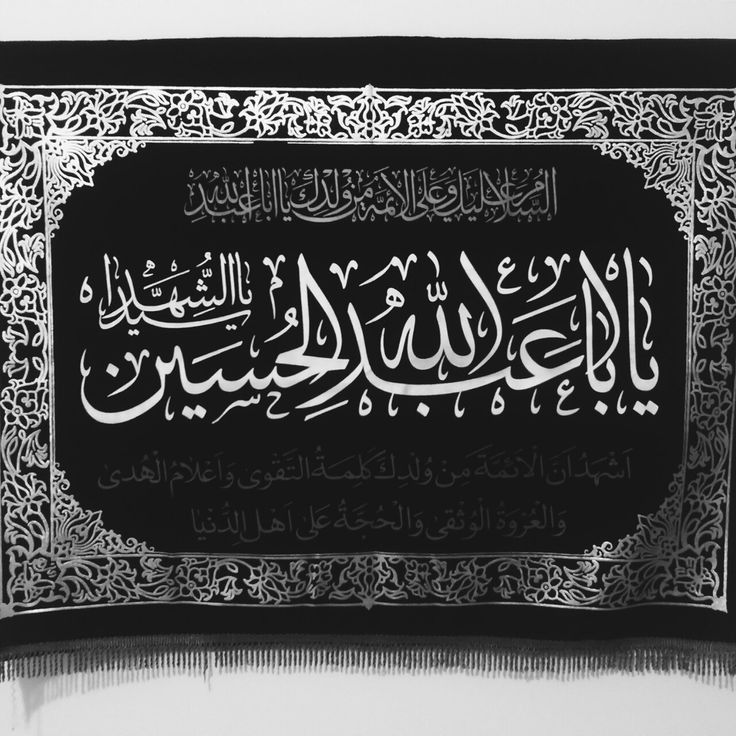 السَّلامُ عَلَيْكَ وَعَلَى الأَئِمَّةِ مِنْ وُلْدِكَ يَا أَبَا عَبْدِ اللهِ
يا ابا عَبدِ اللهِ الحُسَين يا ايُّها الشَّهيد
اَشْهَدُ اَنَ الْاَئِمَّةَ مِنْ وُلْدِكَ كَلِمَةُ التَّقْوى وَاَعْلامُ الْهُدى
وَالْعُرْوَةُ الْوُثْقى وَالْحُجَّةُ عَلى اَهْلِ الدُّنْيا